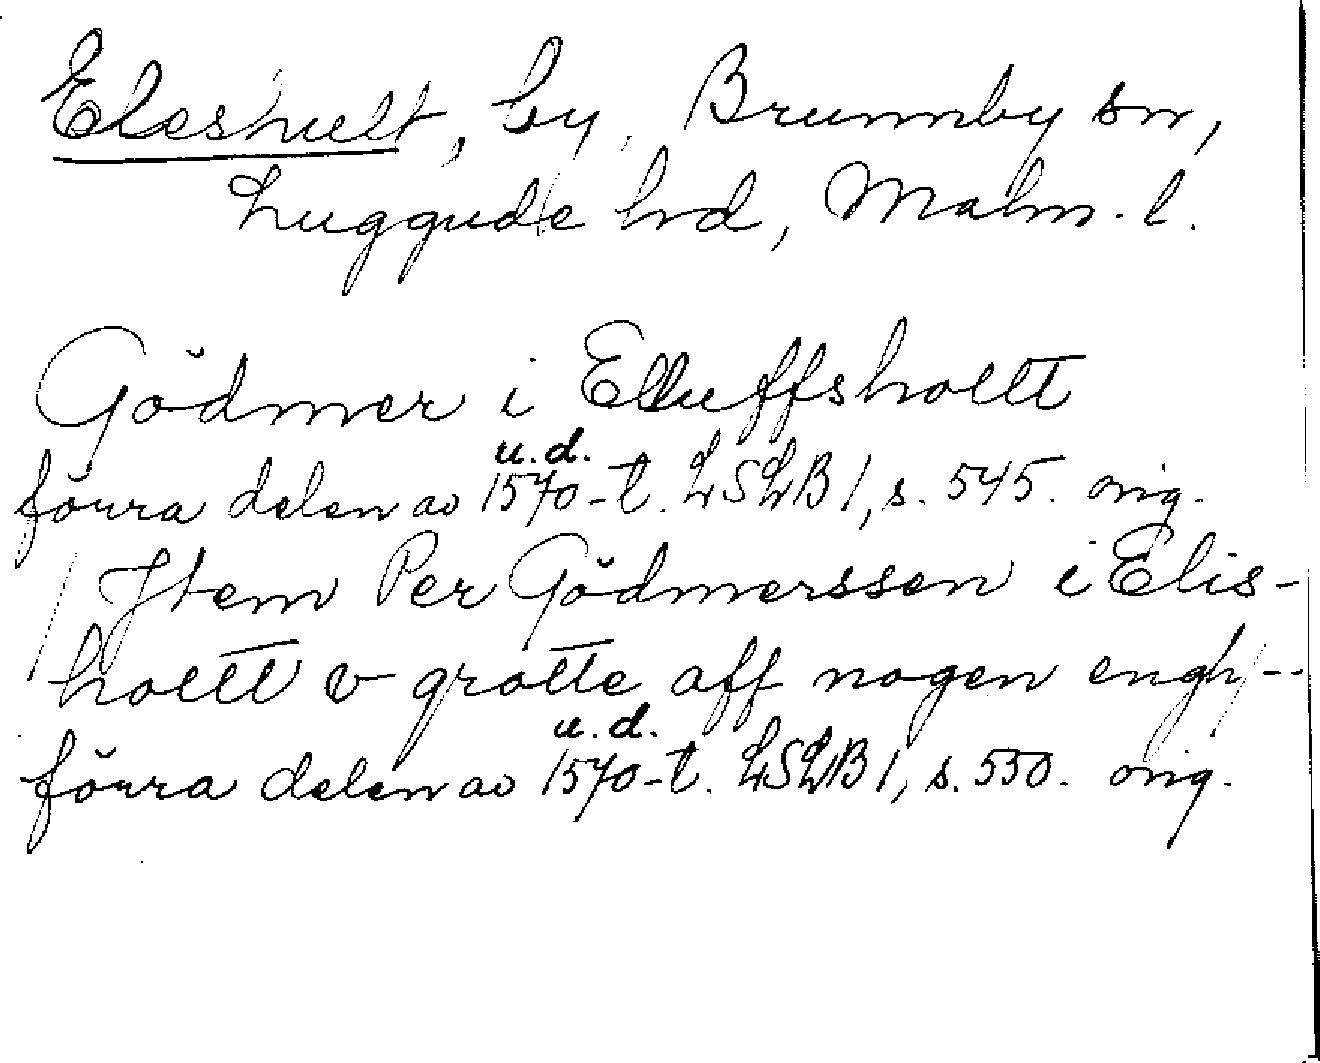 Eleshult, by, Brunnby sn,
Luggude hd, Malm. l.
Gödmer i Elluffshollt
u.d.
förra delen av 1570-t. LSLB 1, s. 545. orig.
/ Jtem Per Gödmerssen i Elis-
hollt v grotte aff nogen engh /--
u.d.
förra delen av 1570-t. LSLB 1, s. 550. orig.